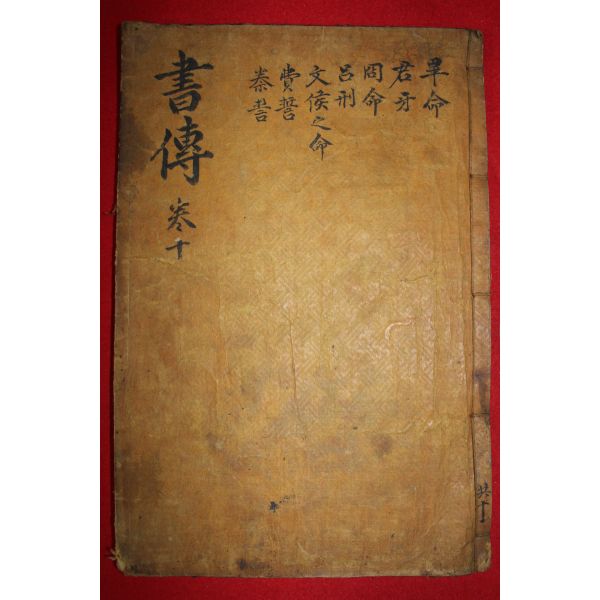 畢命
君牙
冏命
呂刑
文侯之命
費誓
秦誓
書傳 卷十
共十